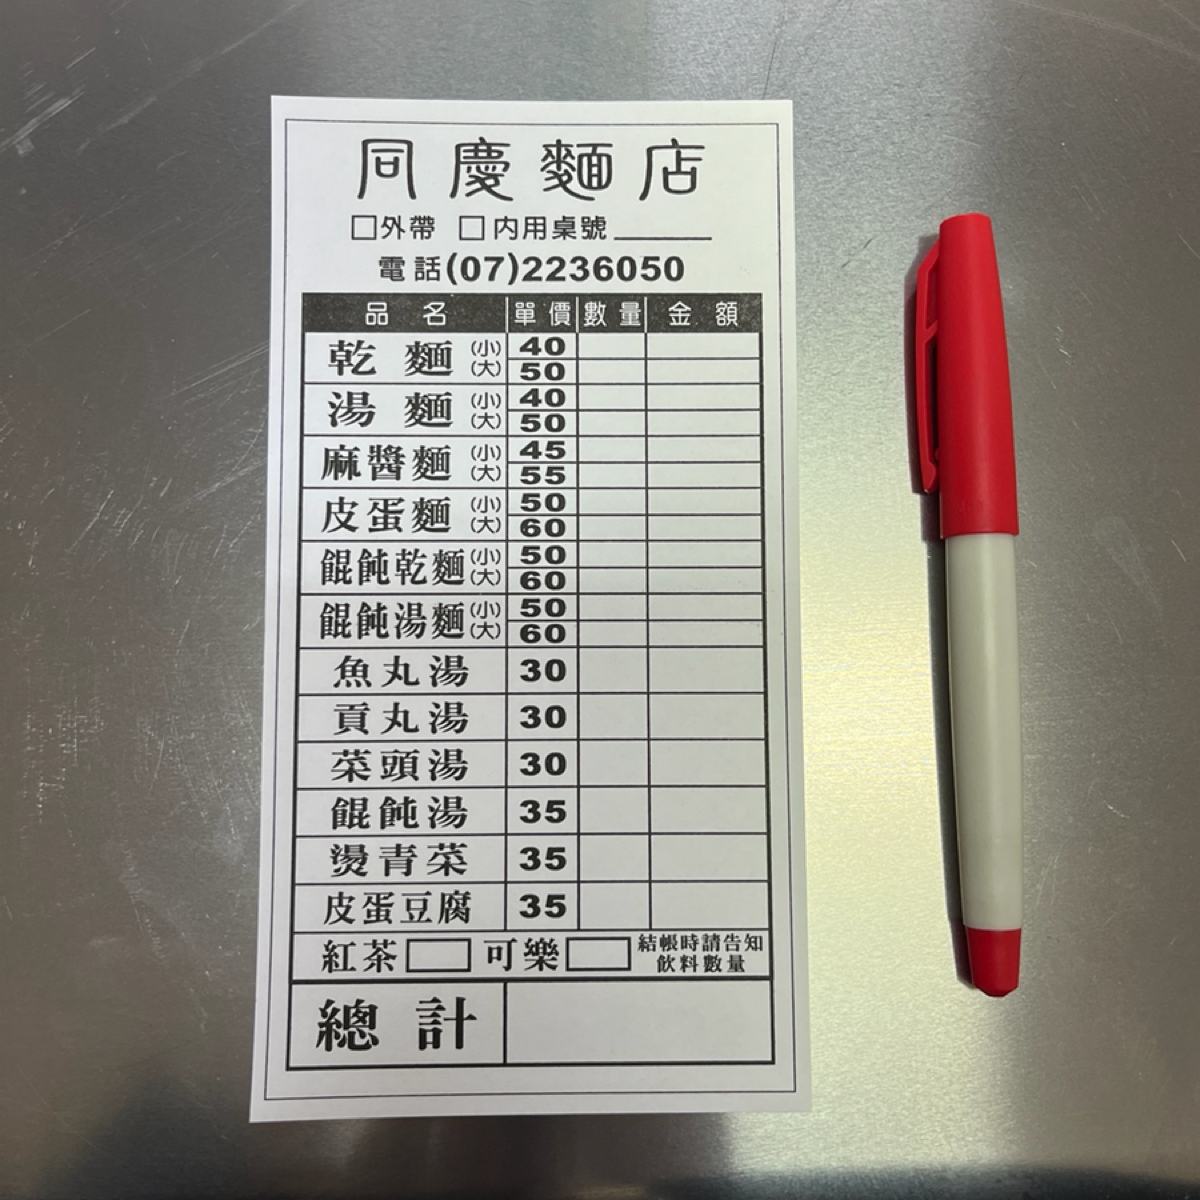 同慶麵店
□外帶 □內用桌號______
電話(07)2236050
品名 單價 數量 金額
乾麵 (小) 40
(大) 50
湯麵 (小) 40
(大) 50
麻醬麵 (小) 45
(大) 55
皮蛋麵 (小) 50
(大) 60
餛飩乾麵 (小) 50
(大) 60
餛飩湯麵 (小) 50
(大) 60
魚丸湯 30
貢丸湯 30
菜頭湯 30
餛飩湯 35
燙青菜 35
皮蛋豆腐 35
紅茶 可樂 結帳時請告知
飲料數量
總計